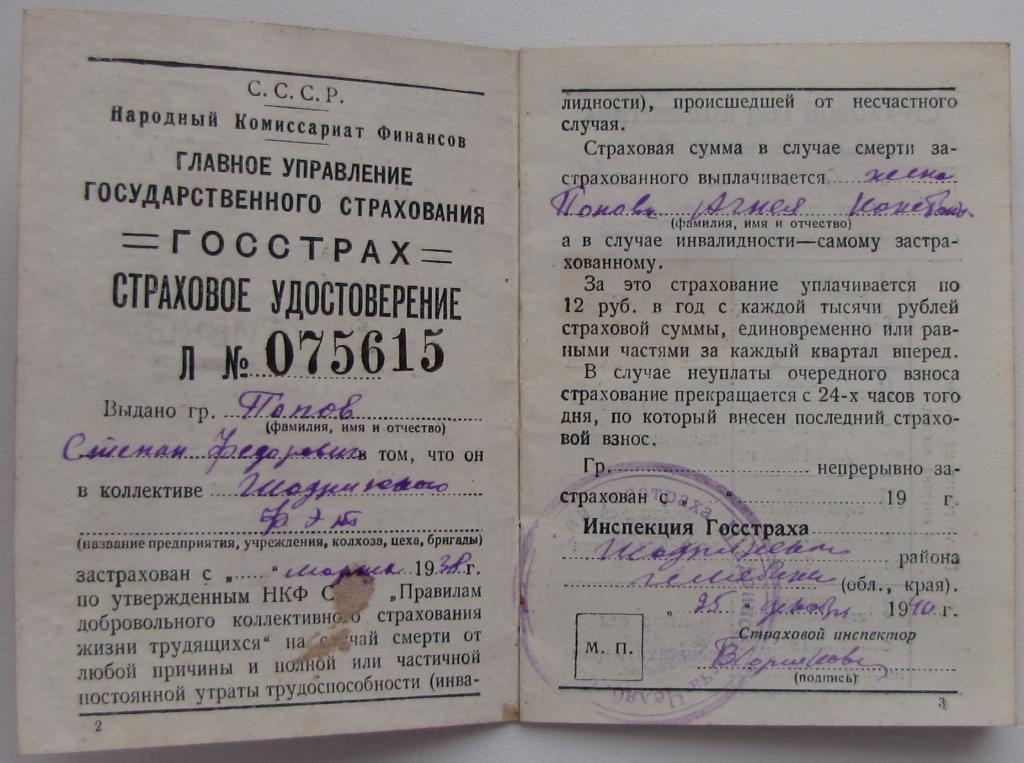 С. С. С. Р.
Народный Комиссариат Финансов
ГЛАВНОЕ УПРАВЛЕНИЕ
ГОСУДАРСТВЕННОГО СТРАХОВАНИЯ
ГОССТРАХ
СТРАХОВОЕ УДОСТОВЕРЕНИЕ
Л № 075615
Выдано гр. Попов
(фамилия, имя и отчество)
Степан Федорович в том, что он
в коллективе
(название предприятия, учреждения, колхоза, цеха, бригады)
застрахован с „ “ марта 1938 г.
по утвержденным НКФ С „Правилам
добровольного коллективного страхования
жизни трудящихся“ на случай смерти от
любой причины и полной или частичной
постоянной утраты трудоспособности (инва-
2
лидности), происшедшей от несчастного
случая.
Страховая сумма в случае смерти за-
страхованного выплачивается жена
Попова Агнея
(фамилия, имя и отчество)
а в случае инвалидности—самому застра-
хованному.
За это страхование уплачивается по
12 руб. в год с каждой тысячи рублей
страховой суммы, единовременно или рав-
ными частями за каждый квартал вперед.
В случае неуплаты очередного взноса
страхование прекращается с 24-х часов того
дня, по который внесен последний страхо-
вой взнос.
Гр. непрерывно за-
страхован с „ “ 19 г.
Инспекция Госстраха
района
(обл., края).
„ 25 “ 1940 г.
Страховой инспектор
М. П.
(подпись)
3